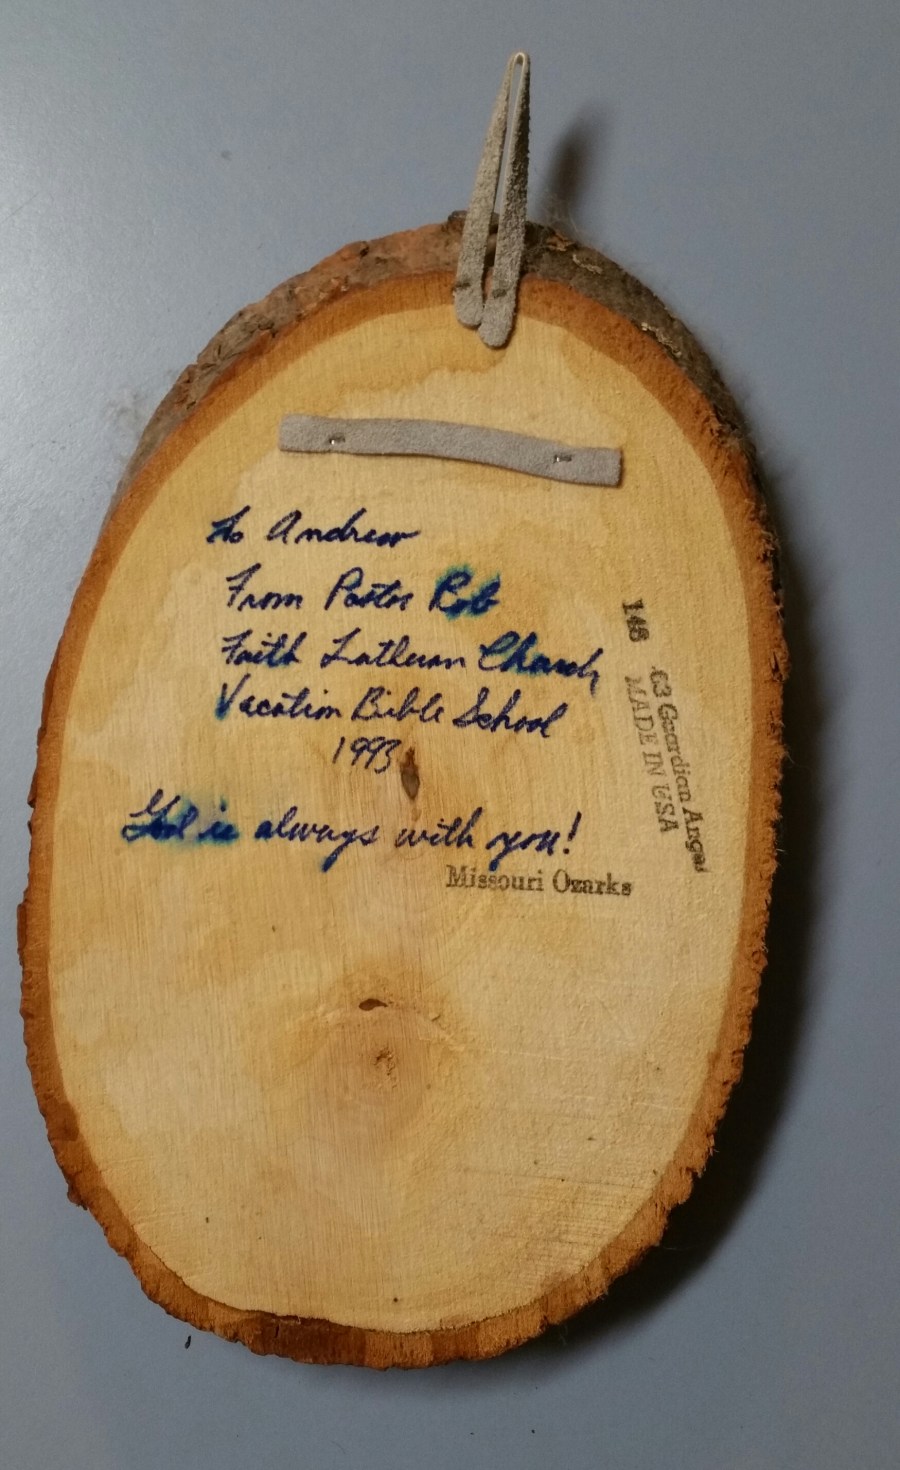 to Andrew
From Pastor Rob
Faith Lutheran Church
Vacation Bible School
1993
God is always with you!
Missouri Ozarks
148 63 Guardian Angel
MADE IN USA